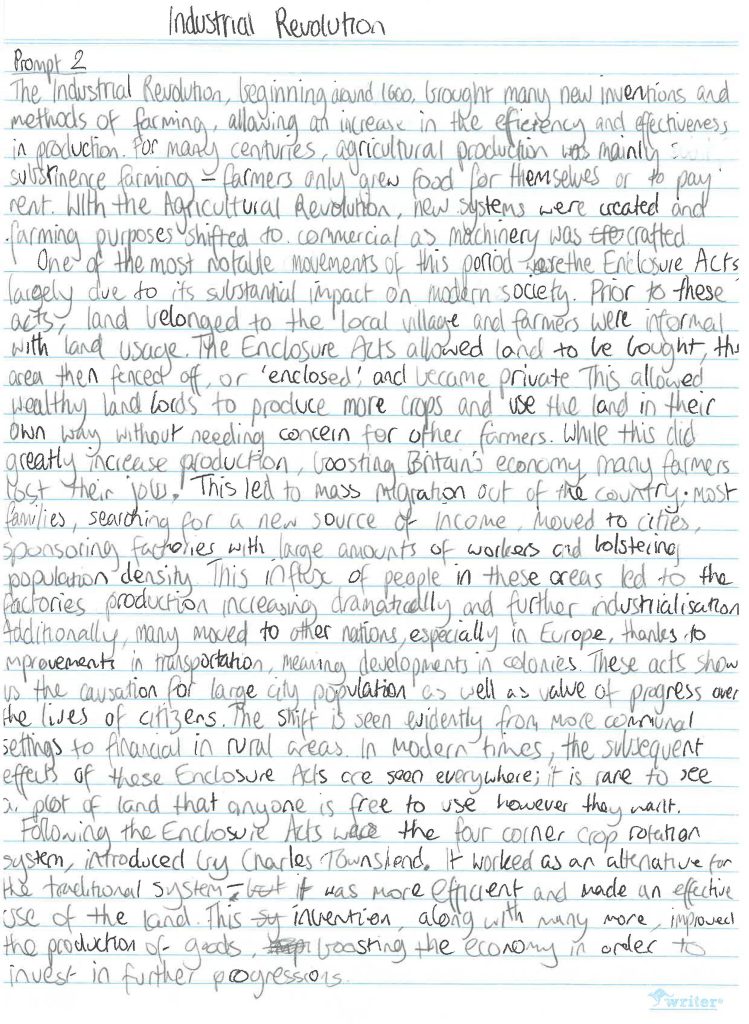 Industrial Revolution
Prompt 2
The Industrial Revolution, beginning around 1600, brought many new inventions and
methods of farming, allowing an increase in the efficiency and effectiveness
in production. For many centuries, agricultural production was mainly
substinence farming – farmers only grew food for themselves or to pay
rent. With the Agricultural Revolution, new systems were created and
farming purposes shifted to commercial as machinery was crafted.
One of the most notable movements of this period were the Enclosure Acts
largely due to its substantial impact on modern society. Prior to these
acts, land belonged to the local village and farmers were informal
with land usage. The Enclosure Acts allowed land to be bought, the
area then fenced off, or 'enclosed', and became private This allowed
wealthy land lords to produce more crops and use the land in their
own way without needing concern for other farmers. While this did
greatly increase production, boosting Britain's economy, many farmers
lost their jobs. This led to mass migration out of the country. Most
families, searching for a new source of income, moved to cities,
sponsoring factories with large amounts of workers and bolstering
population density. This influx of people in these areas led to the
factories production increasing dramatically and further industrialisation
Additionally, many moved to other nations, especially in Europe, thanks to
mprovements in transportation, meaning developments in colonies. These acts show
us the causation for large city population as well as value of progress over
the lives of citizens. The shift is seen evidently from more communal
settings to financial in rural areas. In modern times, the subsequent
effects of these Enclosure Acts are seen everywhere; it is rare to see
a plot of land that anyone is free to use however they want.
Following the Enclosure Acts was the four corner crop rotation
system, introduced by Charles Townshend. It worked as an alternative for
the traditional system – it was more efficient and made an effective
use of the land. This invention, along with many more, improved
the production of goods, boosting the economy in order to
invest in further progressions.
writer